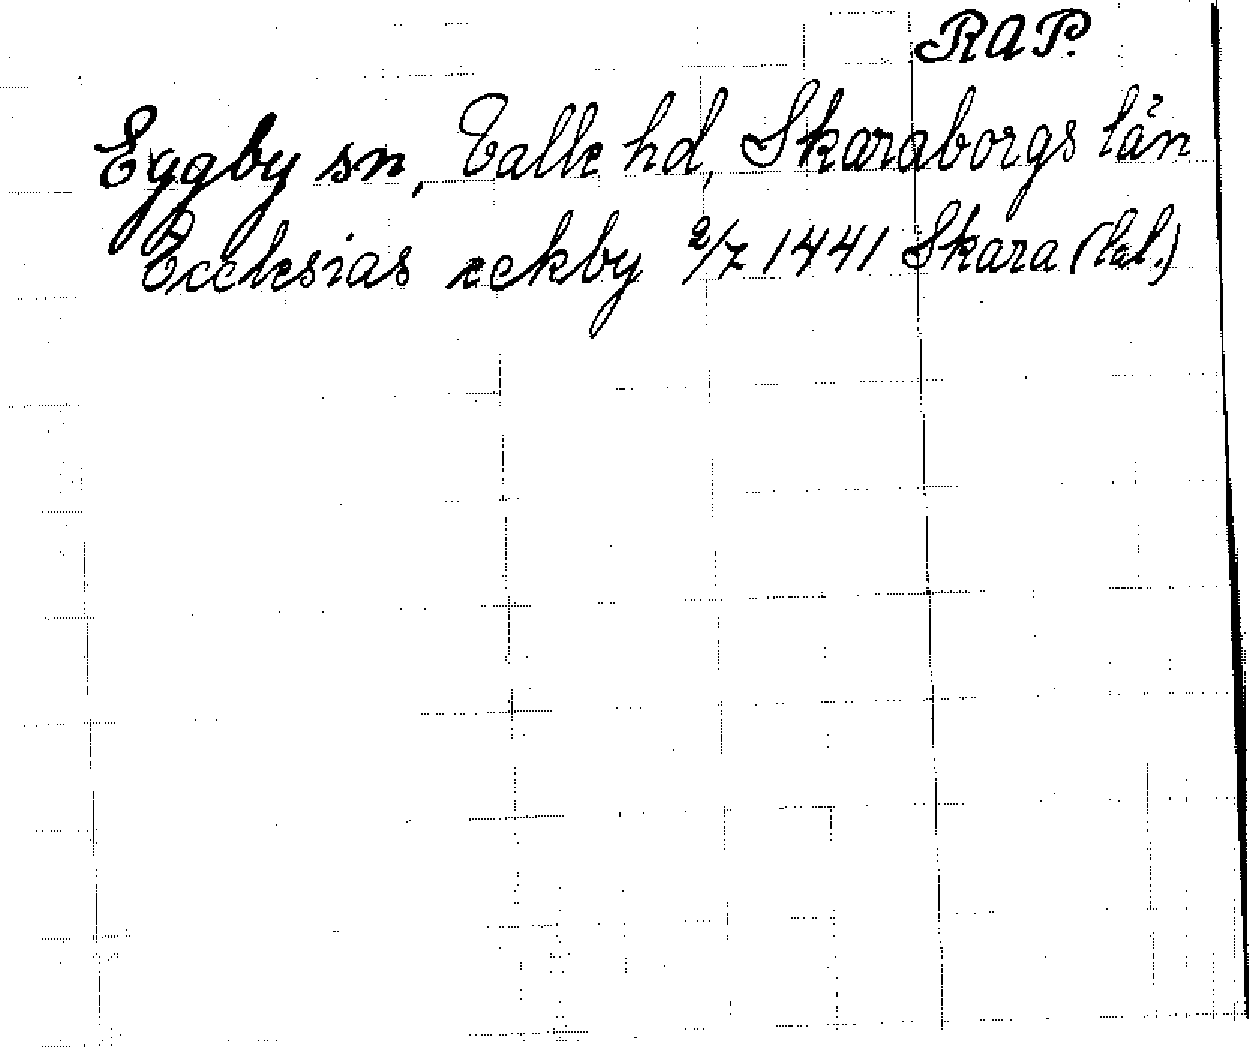 RAP.
Eggby sn, Valle hd, Skaraborgs län
Ecclesias eekby 2/7 1441 Skara (lat.)